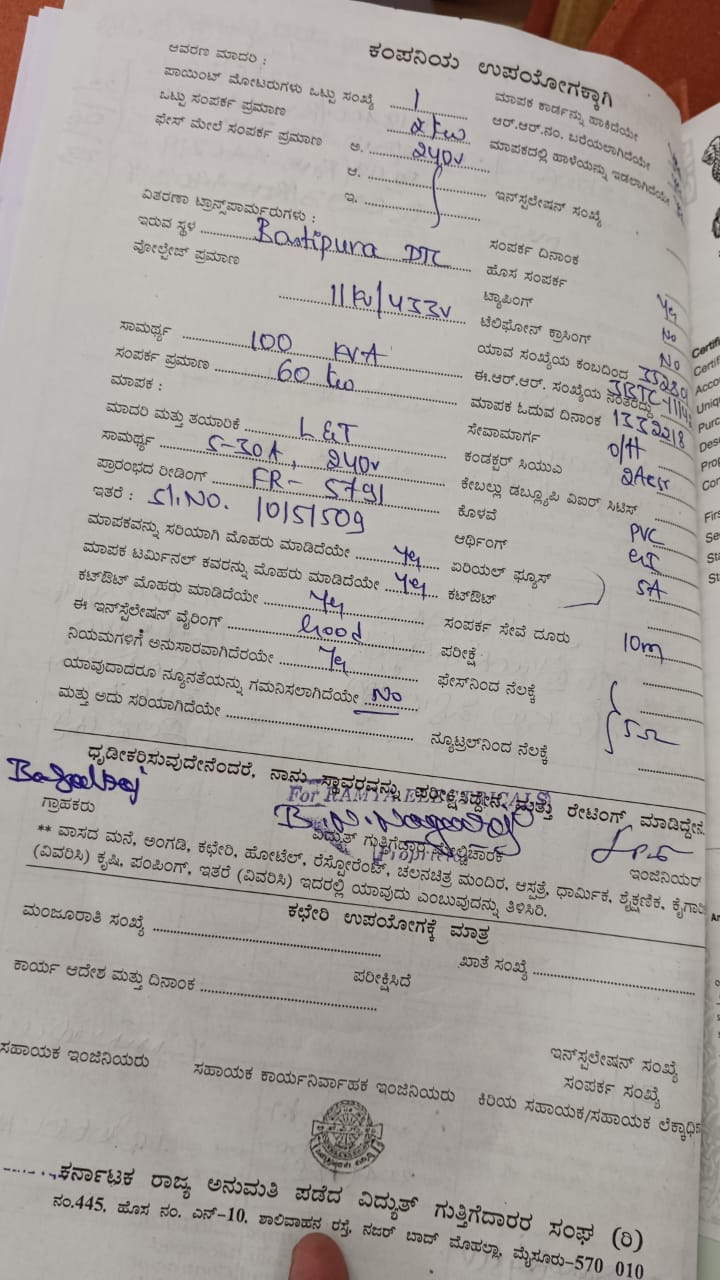 ಕಂಪನಿಯ ಉಪಯೋಗಕ್ಕಾಗಿ
ಆವರಣ ಮಾದರಿ :
ಮಾಪಕ ಕಾರ್ಡನ್ನು ಹಾಕಿದೆಯೇ
ಪಾಯಿಂಟ್ ಮೋಟರುಗಳು ಒಟ್ಟು ಸಂಖ್ಯೆ 1
ಆರ್.ಆರ್.ನಂ. ಬರೆಯಲಾಗಿದೆಯೇ
ಒಟ್ಟು ಸಂಪರ್ಕ ಪ್ರಮಾಣ 2 kw
ಮಾಪಕದಲ್ಲಿ ಹಾಳೆಯನ್ನು ಇಡಲಾಗಿದೆಯೇ
ಫೇಸ್ ಮೇಲೆ ಸಂಪರ್ಕ ಪ್ರಮಾಣ ಅ. 240v
ಆ.
ಇ.
ಇನ್‌ಸ್ಟಲೇಷನ್ ಸಂಖ್ಯೆ
ವಿತರಣಾ ಟ್ರಾನ್ಸ್‌ಪಾರ್ಮರುಗಳು :
ಸಂಪರ್ಕ ದಿನಾಂಕ
ಇರುವ ಸ್ಥಳ Bastipura DTC
ಹೊಸ ಸಂಪರ್ಕ Yes
ವೋಲ್ಟೇಜ್ ಪ್ರಮಾಣ 11kv/433v
ಟ್ಯಾಪಿಂಗ್ No
ಟೆಲಿಫೋನ್ ಕ್ರಾಸಿಂಗ್ No
ಸಾಮರ್ಥ್ಯ 100 KVA
ಯಾವ ಸಂಖ್ಯೆಯ ಕಂಬದಿಂದ
ಸಂಪರ್ಕ ಪ್ರಮಾಣ 60 kw
ಈ.ಆರ್.ಆರ್. ಸಂಖ್ಯೆಯ ನಂತರದ್ದು
ಮಾಪಕ :
ಮಾಪಕ ಓದುವ ದಿನಾಂಕ
ಮಾದರಿ ಮತ್ತು ತಯಾರಿಕೆ L&T
ಸೇವಾಮಾರ್ಗ O/H
ಸಾಮರ್ಥ್ಯ 5-30A, 240v
ಕಂಡಕ್ಟರ್ ಸಿಯುಎ
ಪ್ರಾರಂಭದ ರೀಡಿಂಗ್ FR - 5791
ಕೇಬಲ್ಲು ಡಬ್ಲ್ಯೂಪಿ ವಿಐರ್ ಸಿಟಿಸ್
ಇತರೆ : Sl.NO. 10151509
ಕೊಳವೆ PVC
ಆರ್ಥಿಂಗ್ GI
ಮಾಪಕವನ್ನು ಸರಿಯಾಗಿ ಮೊಹರು ಮಾಡಿದೆಯೇ Yes
ಏರಿಯಲ್ ಫ್ಯೂಸ್
ಮಾಪಕ ಟರ್ಮಿನಲ್ ಕವರನ್ನು ಮೊಹರು ಮಾಡಿದೆಯೇ Yes
ಕಟ್‌ಔಟ್ 5A
ಕಟ್‌ಔಟ್ ಮೊಹರು ಮಾಡಿದೆಯೇ Yes
ಸಂಪರ್ಕ ಸೇವೆ ದೂರು 10m
ಈ ಇನ್‌ಸ್ಟೆಲೇಷನ್ ವೈರಿಂಗ್ Good
ಪರೀಕ್ಷೆ
ನಿಯಮಗಳಿಗೆ ಅನುಸಾರವಾಗಿದೆರಯೇ Yes
ಫೇಸ್‌ನಿಂದ ನೆಲಕ್ಕೆ
ಯಾವುದಾದರೂ ನ್ಯೂನತೆಯನ್ನು ಗಮನಿಸಲಾಗಿದೆಯೇ No
5Ω
ಮತ್ತು ಅದು ಸರಿಯಾಗಿದೆಯೇ
ನ್ಯೂಟ್ರಲ್‌ನಿಂದ ನೆಲಕ್ಕೆ
ಧೃಡೀಕರಿಸುವುದೇನೆಂದರೆ, ನಾನು ಸ್ಥಾವರವನ್ನು ಪರೀಕ್ಷಿಸಿದ್ದೇನೆ ಮತ್ತು ರೇಟಿಂಗ್ ಮಾಡಿದ್ದೇನೆ.
For RAMYA ELECTRICALS
B.N.Nagaraj
ಗ್ರಾಹಕರು
ವಿದ್ಯುತ್ ಗುತ್ತಿಗೆದಾರ
ಇಂಜಿನಿಯರ್
** ವಾಸದ ಮನೆ, ಅಂಗಡಿ, ಕಛೇರಿ, ಹೋಟೆಲ್, ರೆಸ್ಟೋರೆಂಟ್, ಚಲನಚಿತ್ರ ಮಂದಿರ, ಆಸ್ಪತ್ರೆ, ಧಾರ್ಮಿಕ, ಶೈಕ್ಷಣಿಕ,
(ವಿವರಿಸಿ) ಕೃಷಿ, ಪಂಪಿಂಗ್, ಇತರೆ (ವಿವರಿಸಿ) ಇದರಲ್ಲಿ ಯಾವುದು ಎಂಬುವುದನ್ನು ತಿಳಿಸಿರಿ.
ಕಛೇರಿ ಉಪಯೋಗಕ್ಕೆ ಮಾತ್ರ
ಮಂಜೂರಾತಿ ಸಂಖ್ಯೆ
ಖಾತೆ ಸಂಖ್ಯೆ
ಕಾರ್ಯ ಆದೇಶ ಮತ್ತು ದಿನಾಂಕ
ಪರೀಕ್ಷಿಸಿದೆ
ಇನ್‌ಸ್ಟಲೇಷನ್ ಸಂಖ್ಯೆ
ಸಂಪರ್ಕ ಸಂಖ್ಯೆ
ಸಹಾಯಕ ಇಂಜಿನಿಯರು
ಸಹಾಯಕ ಕಾರ್ಯನಿರ್ವಾಹಕ ಇಂಜಿನಿಯರು
ಕಿರಿಯ ಸಹಾಯಕ/ಸಹಾಯಕ
ಕರ್ನಾಟಕ ರಾಜ್ಯ ಅನುಮತಿ ಪಡೆದ ವಿದ್ಯುತ್ ಗುತ್ತಿಗೆದಾರರ ಸಂಘ (ರಿ)
ನಂ.445, ಹೊಸ ನಂ. ಎನ್-10, ಶಾಲಿವಾಹನ ರಸ್ತೆ, ನಜರ್ ಬಾದ್ ಮೊಹಲ್ಲಾ, ಮೈಸೂರು-570 010